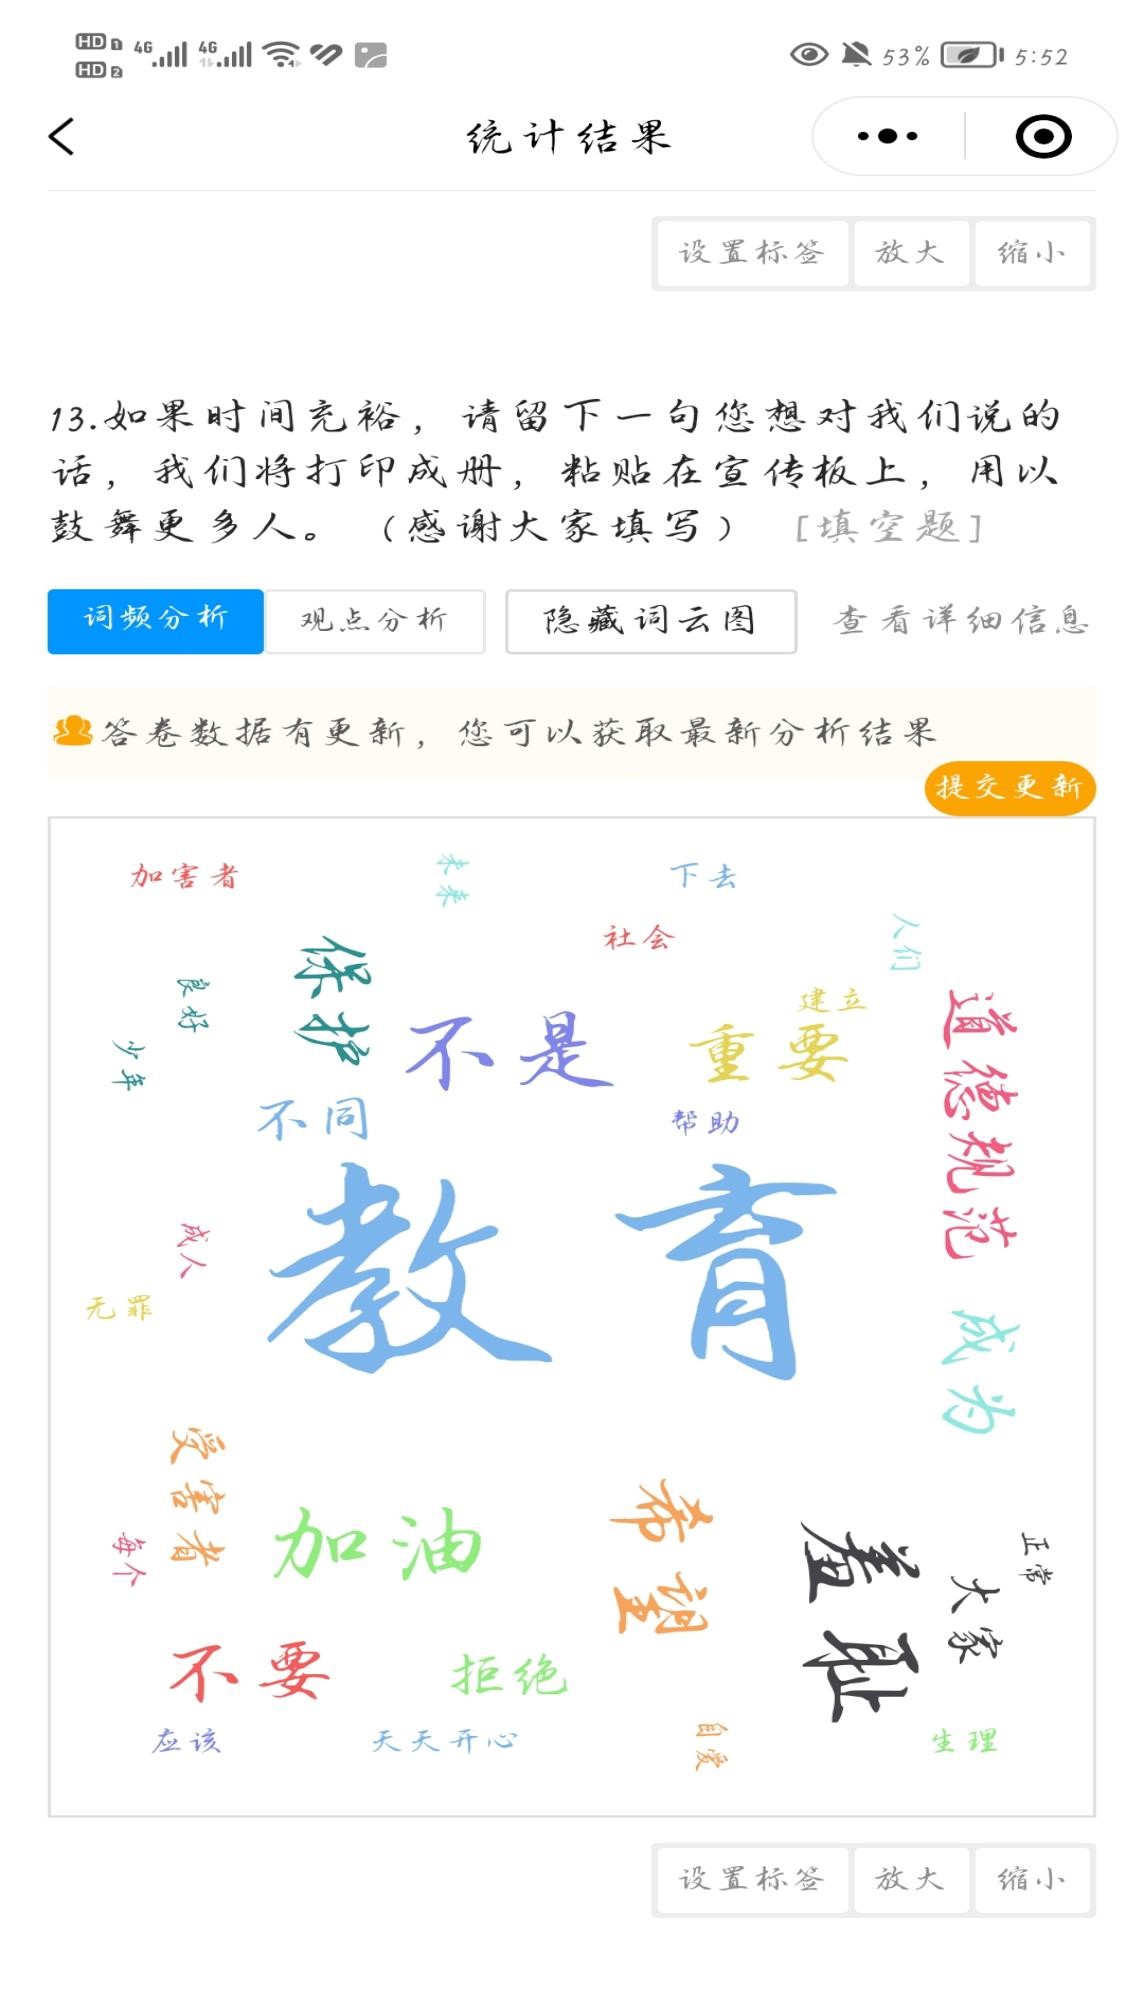 HD 1 4G 4G 53% 5:52
HD 2
统计结果
设置标签 放大 缩小
13.如果时间充裕，请留下一句您想对我们说的
话，我们将打印成册，粘贴在宣传板上，用以
鼓舞更多人。（感谢大家填写） [填空题]
词频分析 观点分析 隐藏词云图 查看详细信息
答卷数据有更新，您可以获取最新分析结果
提交更新
加害者
未来
下去
社会
人们
保护
良好
建立
道德规范
不是
重要
少年
不同
帮助
教育
成人
无罪
成为
受害者
加油
希望
羞耻
每个
正常
大家
不要
拒绝
应该
天天开心
自爱
生理
设置标签 放大 缩小